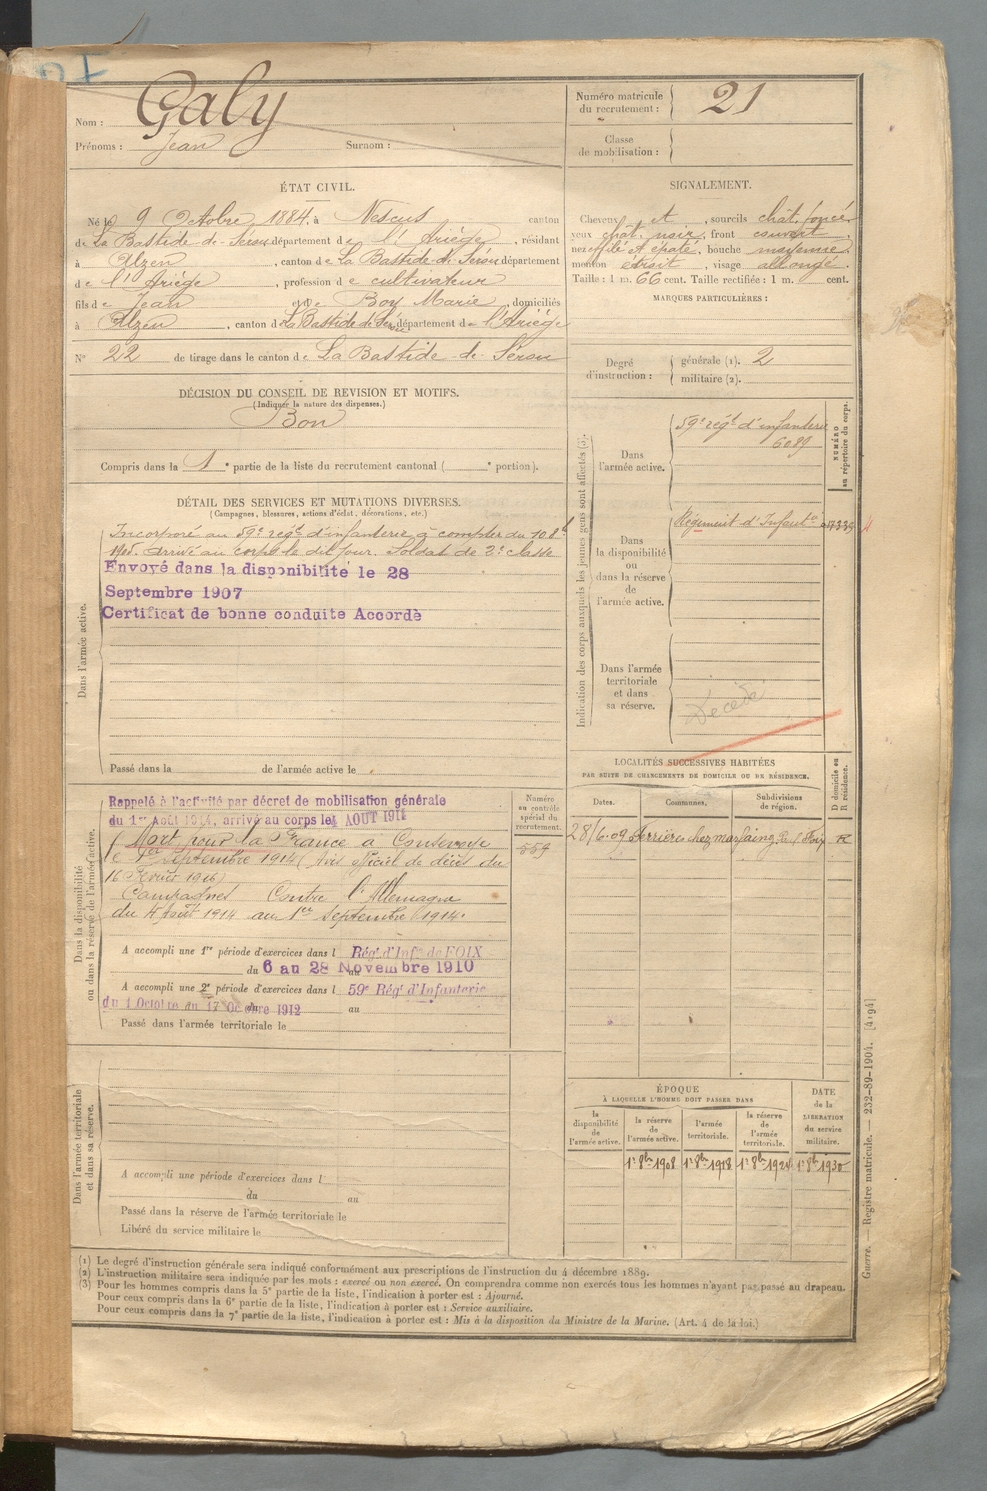 Nom : Galy
Prénoms : Jean Surnom :
Numéro matricule
du recrutement : 21
Classe
de mobilisation :
ÉTAT CIVIL.
Né le 9 Octobre 1884, à Nescus canton
de La Bastide-de-Sérou département de l'Ariège, résidant
à Alzen, canton de La Bastide-de-Sérou département
de l'Ariège, profession de cultivateur
fils de Jean et de Boy Marie, domiciliés
à Alzen, canton de La Bastide de Sérou, département de l'Ariège
N° 22 de tirage dans le canton de La Bastide-de-Sérou
SIGNALEMENT.
Cheveux et, sourcils chât. foncé
yeux chât. noir, front couvert,
nez effilé et épaté, bouche moyenne
menton étroit, visage allongé.
Taille : 1 m. 66 cent. Taille rectifiée : 1 m. cent.
MARQUES PARTICULIÈRES :
Degré
d'instruction :
générale (1). 2
militaire (2).
DÉCISION DU CONSEIL DE REVISION ET MOTIFS.
(Indiquer la nature des dispenses.)
Bon
Compris dans la 1e partie de la liste du recrutement cantonal ( e portion).
DÉTAIL DES SERVICES ET MUTATIONS DIVERSES.
(Campagnes, blessures, actions d'éclat, décorations, etc.)
Dans l'armée active.
Incorporé au 59e régt d'infanterie à compter du 10 8b
1905. Arrivé au corps le dit jour. Soldat de 2e classe
Envoyé dans la disponibilité le 28
Septembre 1907
Certificat de bonne conduite Accordé
Passé dans la de l'armée active le
Indication des corps auxquels les jeunes gens sont affectés (3).
NUMÉRO
au répertoire du corps.
Dans
l'armée active.
59e régt d'infanterie
6089
Dans
la disponibilité
ou
dans la réserve
de
l'armée active.
Régiment d'Infantie
Dans l'armée
territoriale
et dans
sa réserve.
Décédé
LOCALITÉS SUCCESSIVES HABITÉES
PAR SUITE DE CHANGEMENTS DE DOMICILE OU DE RÉSIDENCE.
Dates. Communes. Subdivisions
de région.
D domicile ou
R résidence.
28/6.09 Ferrières chez Foix R
Dans la disponibilité
ou dans la réserve de l'armée active.
Numéro
au contrôle
spécial du
recrutement.
559
Rappelé à l'activité par décret de mobilisation générale
du 1er Août 1914, arrivé au corps le 4 AOUT 1914
Mort pour la France à
le 1er Septembre 1914 (Avis officiel de décès du
16 Février 1916)
Campagnes Contre l'Allemagne
du 4 Août 1914 au 1er Septembre 1914.
A accompli une 1re période d'exercices dans l Régt d'Infie de FOIX
du 6 au 28 Novembre 1910
A accompli une 2e période d'exercices dans l 59e Régt d'Infanterie
du 1 Octobre au 17 Octobre 1912 au
Passé dans l'armée territoriale le
Dans l'armée territoriale
et dans sa réserve.
A accompli une période d'exercices dans l
du au
Passé dans la réserve de l'armée territoriale le
Libéré du service militaire le
ÉPOQUE
À LAQUELLE L'HOMME DOIT PASSER DANS
DATE
de la
LIBÉRATION
du service
militaire.
la
disponibilité
de
l'armée active.
la réserve
de
l'armée active.
l'armée
territoriale.
la réserve
de
l'armée
territoriale.
1er 8bre 1908 1er 8bre 1918 1er 8bre 1924 1er 8bre 1930
(1) Le degré d'instruction générale sera indiqué conformément aux prescriptions de l'instruction du 4 décembre 1889.
(2) L'instruction militaire sera indiquée par les mots : exercé ou non exercé. On comprendra comme non exercés tous les hommes n'ayant pas passé au drapeau.
(3) Pour les hommes compris dans la 5e partie de la liste, l'indication à porter est : Ajourné.
Pour ceux compris dans la 6e partie de la liste, l'indication à porter est : Service auxiliaire.
Pour ceux compris dans la 7e partie de la liste, l'indication à porter est : Mis à la disposition du Ministre de la Marine. (Art. 4 de la loi.)
Guerre. — Registre matricule. — 232-89-1904. [4194]